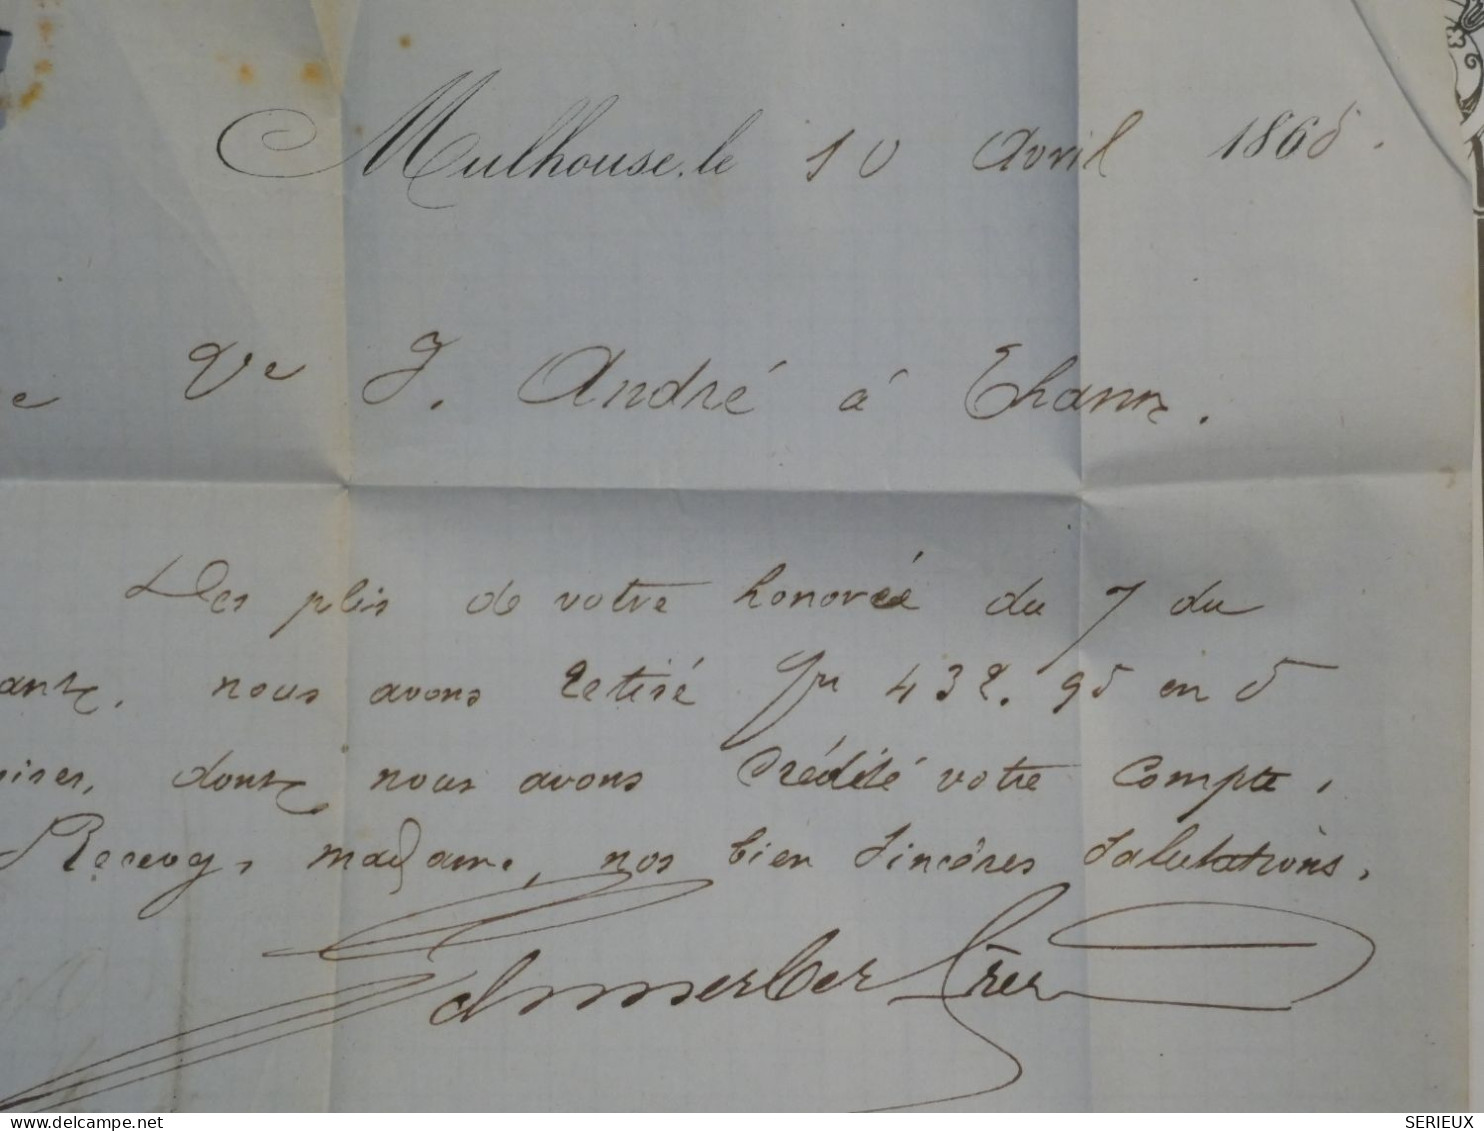 Mulhouse, le 10 Avril 1865.
Ve J. André à Thann.
Des plis de votre honorée du 7 du
nous avons retiré fr 432.95 en 5
dont nous avons crédité votre compte.
Recevez, madame, nos bien sincères salutations.
frères
delcampe.net
SERIEUX